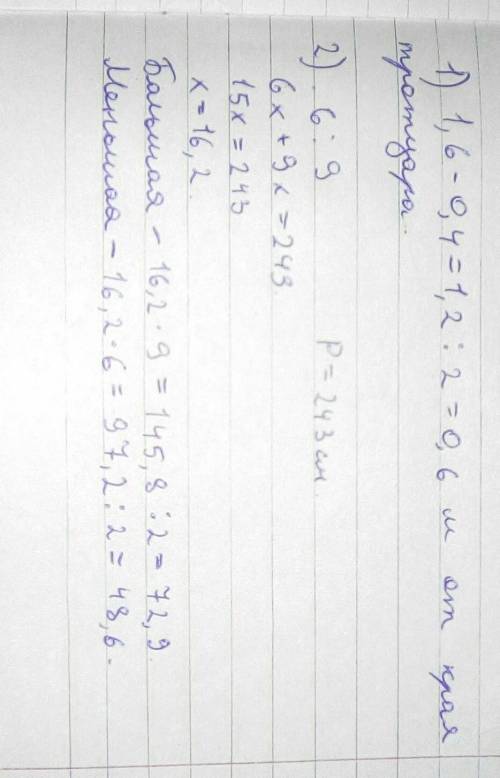 1) 1,6 - 0,4 = 1,2 : 2 = 0,6 м от края
тротуара.
2) 6 : 9 P = 243 см.
6x + 9x = 243.
15x = 243
x = 16,2.
Большая - 16,2 · 9 = 145,8 : 2 = 72,9.
Меньшая - 16,2 · 6 = 97,2 : 2 = 48,6.